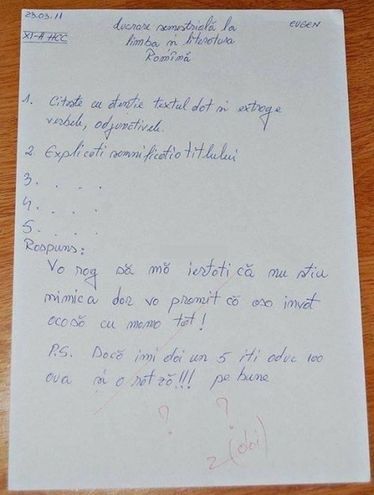 23.03.11
XI-A HCC
EUGEN
Lucrare semestrială la
limba și literatura
Romînă
1. Citiste cu atentie textul dat si extrage
verbele, adjunctivele.
2. Explicati semnificatia titlului
3. . . . .
4. . . . .
5. . . . .
Raspuns:
Vo rog să mă iertati că nu stiu
nimica dar vo promit că oso invot
acosă cu mama tăt!
P.S. Dacă imi dai un 5 iti aduc 100
oua și o rotză!!! pe bune
? ?
2 (doi)